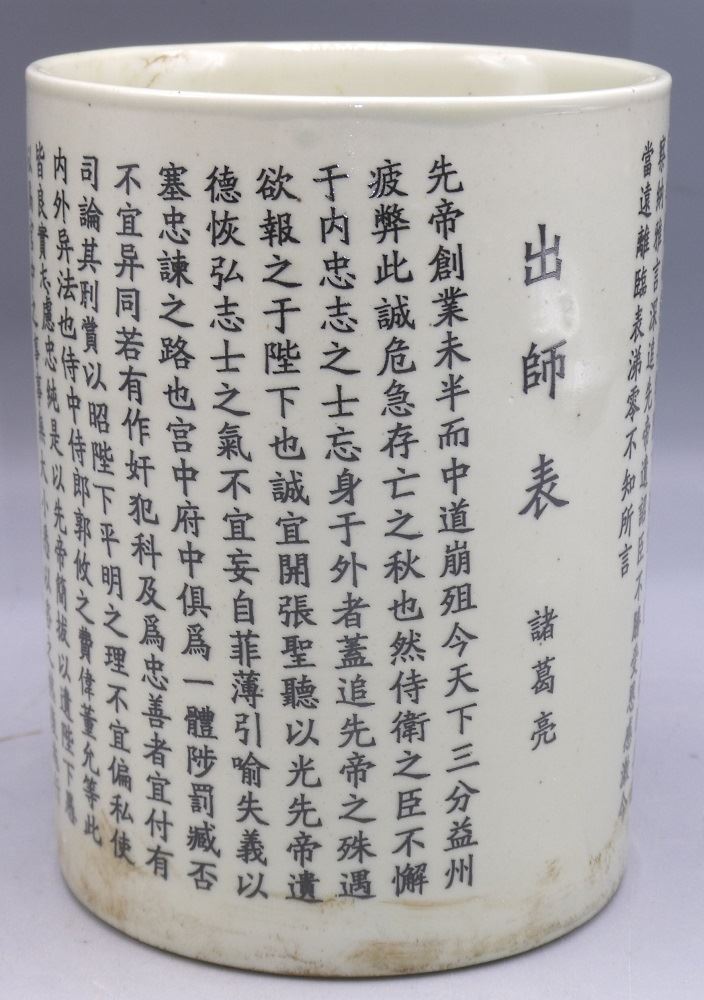 察納雅言深追先帝遺詔臣不勝受恩感激今
當遠離臨表涕零不知所言
出師表
諸葛亮
先帝創業未半而中道崩殂今天下三分益州
疲弊此誠危急存亡之秋也然侍衛之臣不懈
于内忠志之士忘身于外者蓋追先帝之殊遇
欲報之于陛下也誠宜開張聖聽以光先帝遺
德恢弘志士之氣不宜妄自菲薄引喻失義以
塞忠諫之路也宫中府中俱爲一體陟罰臧否
不宜异同若有作奸犯科及爲忠善者宜付有
司論其刑賞以昭陛下平明之理不宜偏私使
内外异法也侍中侍郎郭攸之費偉董允等此
皆良實志慮忠純是以先帝簡拔以遺陛下愚
宫中之事事無大小悉以咨之